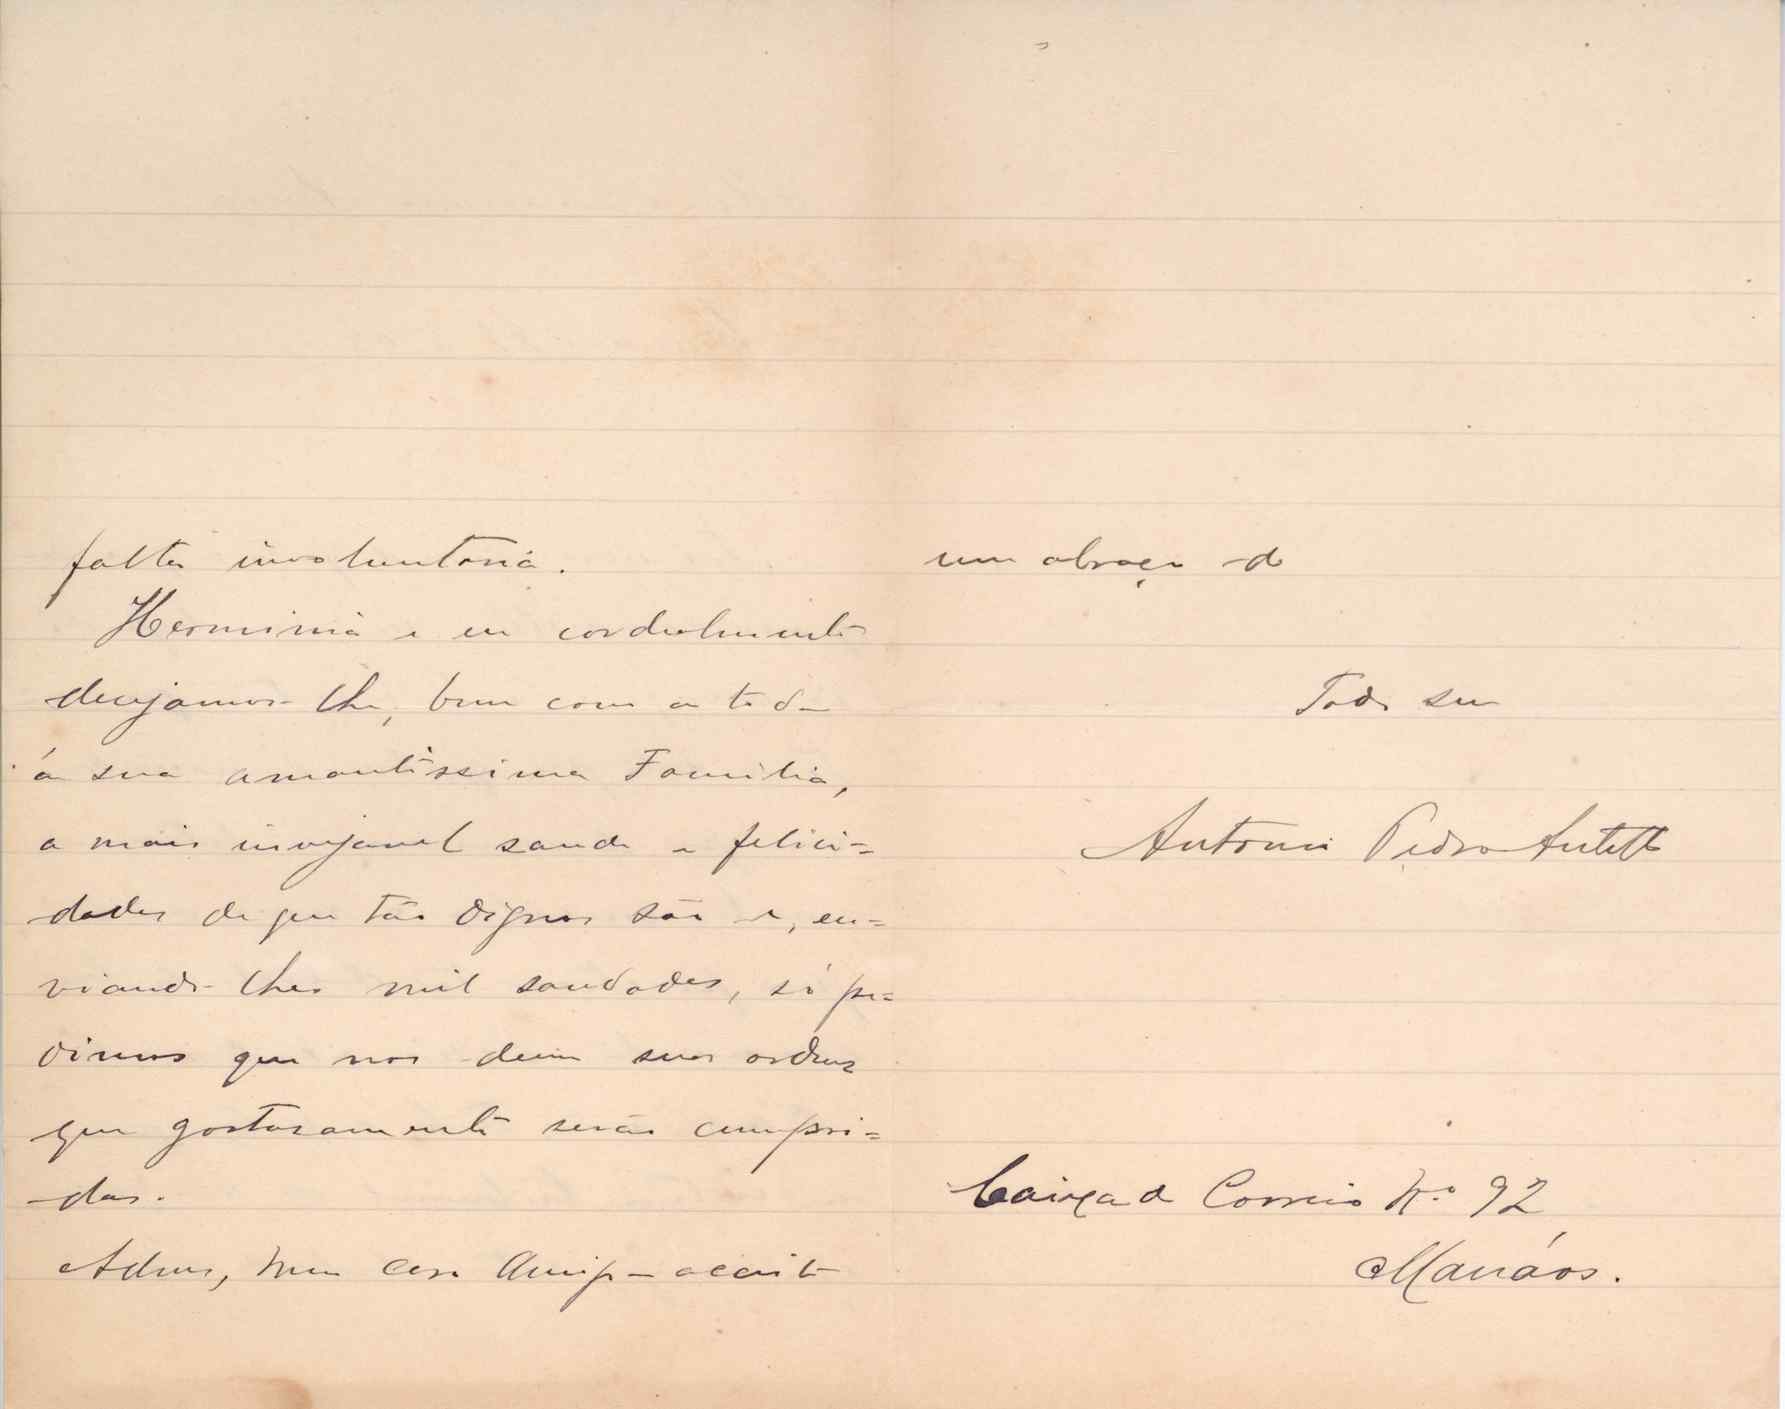 falta involuntaria.
Herminia e eu cordealmente
desejamos-lhe, bem com a toda
á sua amantissima Familia,
a mais invejavel saude e felici=
dades de que tão dignos são e, en=
viando-lhes mil saudades, só pe=
dimos que nos deem suas ordens
que gostosamente serão cumpri=
das.
Adeus, meu caro Amigo - acceite
um abraço do
Todo seu
Antonio Pedro
Caixa do Correio No. 92
Manáos.